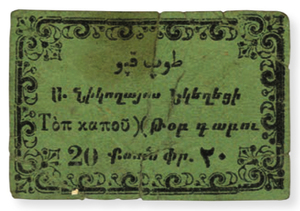 طوپ قپو
Ս. Նիկողայոս Եկեղեցի
Τὸπ καποῦ)(Թօփ գաբու
20 Փառա Փր. ٢٠